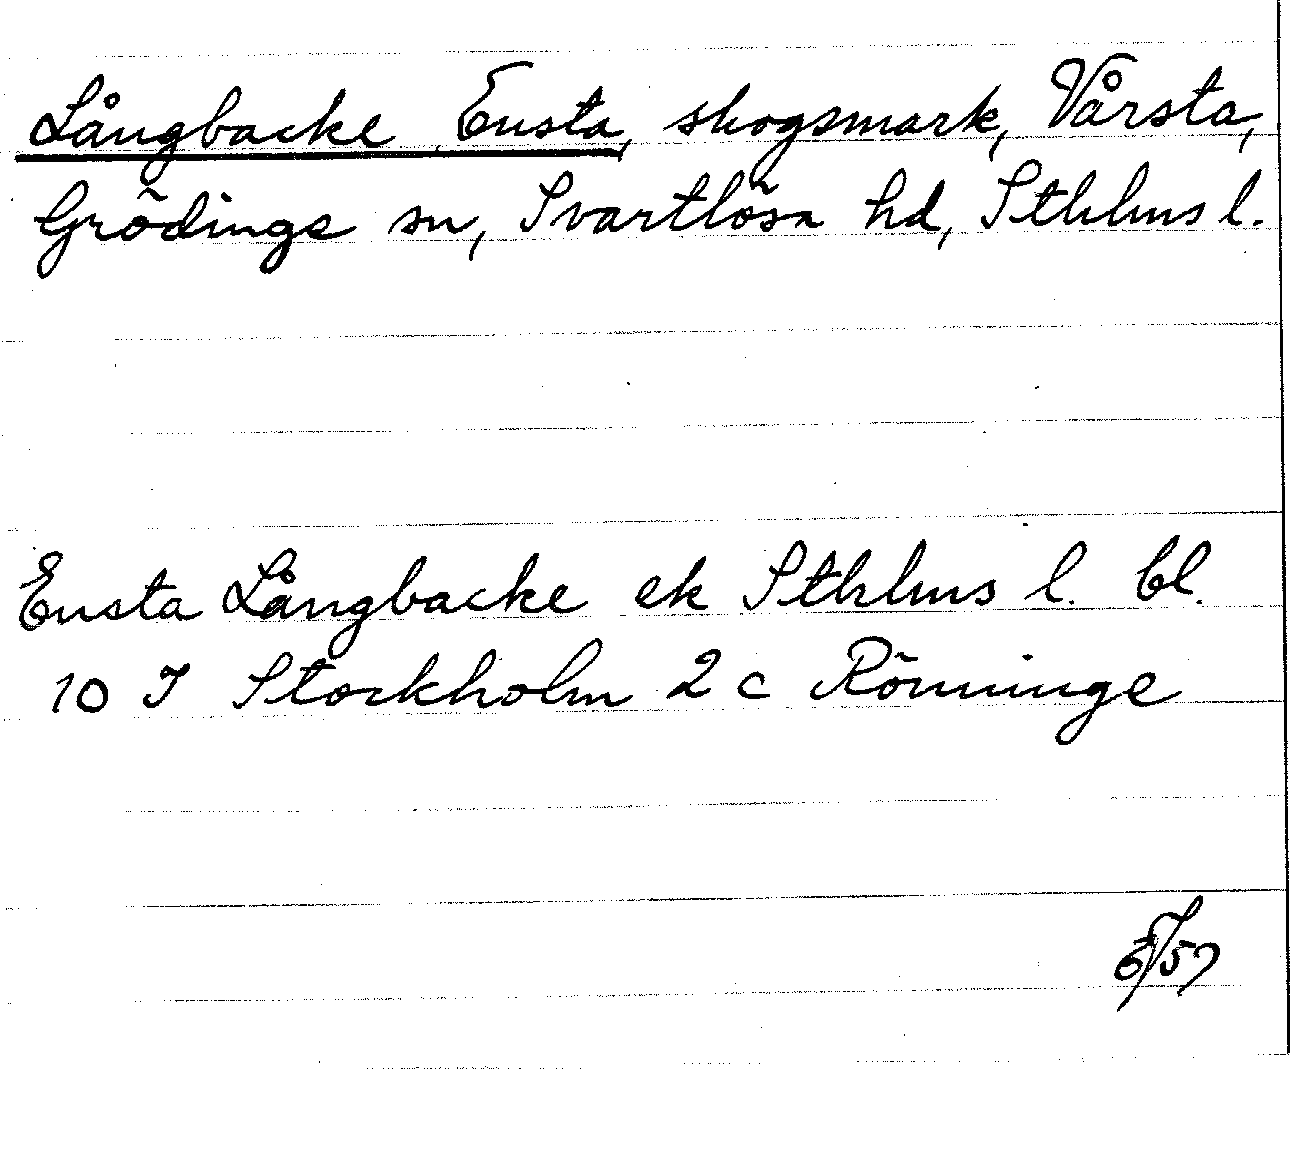 Långbacke Ensta, skogsmark, Vårsta,
Grödinge sn, Svartlösa hd, Sthlms l.
Ensta Långbacke ek Sthlms l. bl.
10 I Stockholm 2 c Rönninge